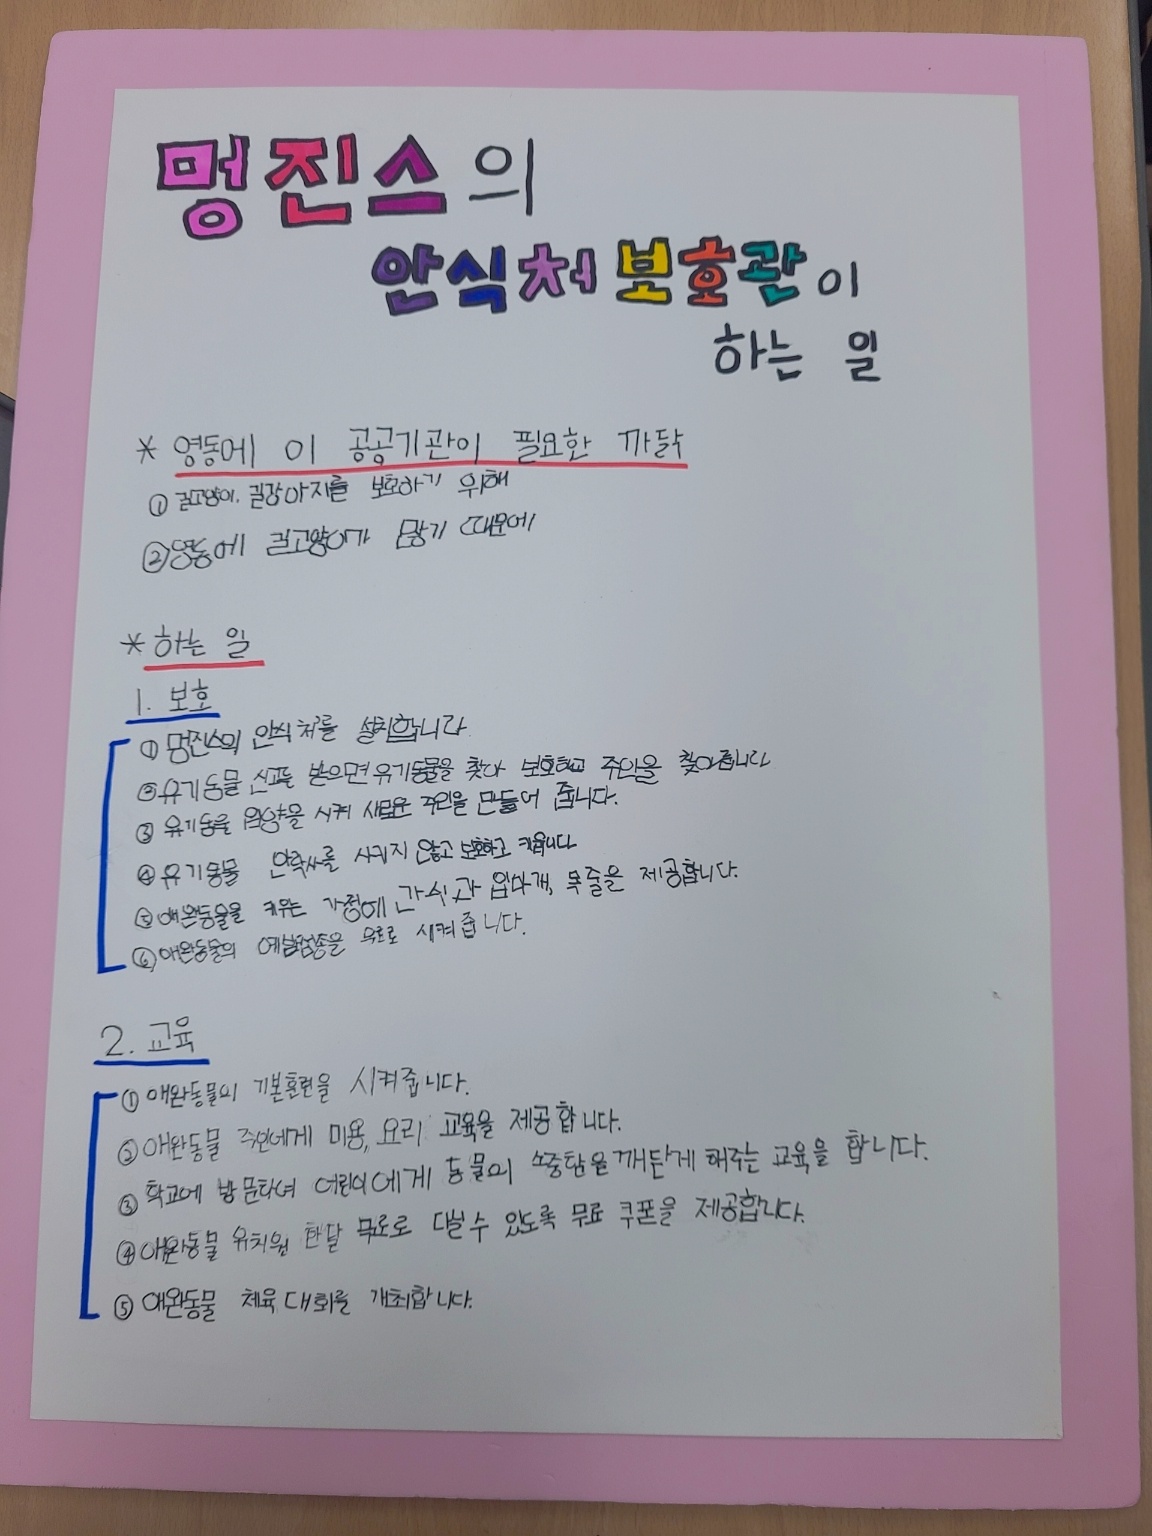 멍진스의
안식처보호관이
하는 일
* 영동에 이 공공기관이 필요한 까닭
① 길고양이, 길강아지를 보호하기 위해
② 영동에 길고양이가 많기 때문에
* 하는 일
1. 보호
① 멍진스의 안식처를 설치합니다
② 유기동물 신고를 받으면 유기동물을 찾아 보호하고 주인을 찾아줍니다
③ 유기동물 입양을 시켜 새로운 주인을 만들어 줍니다.
④ 유기동물 안락사를 시키지 않고 보호하고 키웁니다
⑤ 애완동물을 키우는 가정에 간식과 입마개, 목줄을 제공합니다.
⑥ 애완동물의 예방접종을 무료로 시켜 줍니다.
2. 교육
① 애완동물의 기본훈련을 시켜줍니다.
② 애완동물 주인에게 미용, 요리 교육을 제공합니다.
③ 학교에 방문하여 어린이에게 동물의 소중함을 깨닫게 해주는 교육을 합니다.
④ 애완동물 유치원 한달 무료로 다닐 수 있도록 무료 쿠폰을 제공합니다.
⑤ 애완동물 체육대회를 개최합니다.